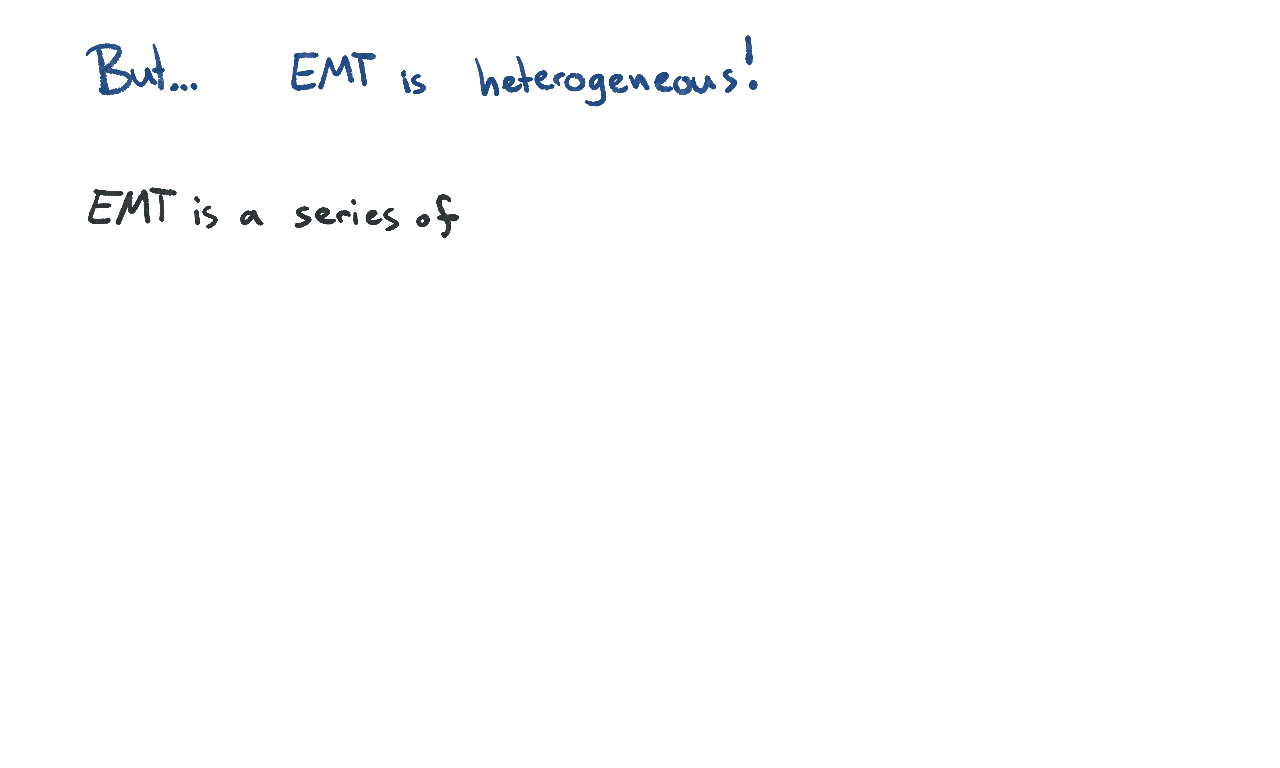 But... EMT is heterogeneous!
EMT is a series of